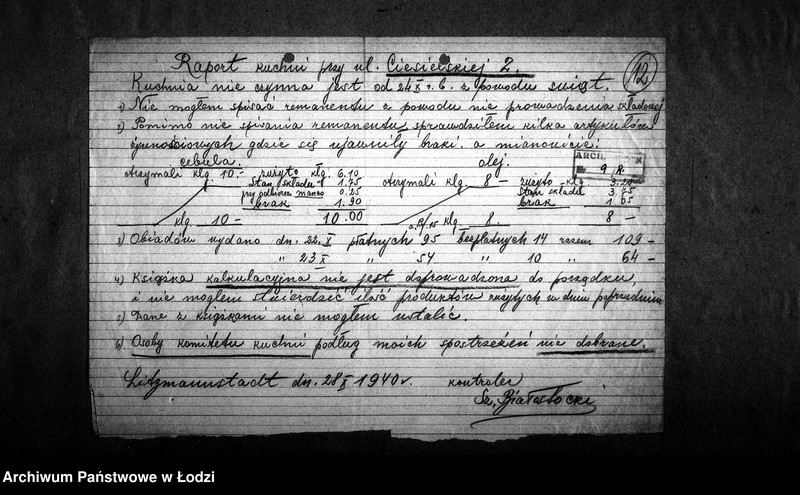 Raport kuchni przy ul. Ciesielskiej 2.
12
Kuchnia nie czynna jest od 24 X r.b. z powodu świąt.
1) Nie mogłem spisać remanentu z powodu nie prowadzenia składowej
2) Pomimo nie spisania remanentu sprawdziłem kilka artykułów
żywnościowych gdzie się ujawniły braki. a mianowicie:
cebula. olej.
ARCH.
9 R.
otrzymali klg 10.- zużyto klg. 6.10 otrzymali klg 8 - zużyto - klg. 3.20
Stan składu - 1.75 Stan składu 3.75
przy odbiorze manco 0.25 brak 1.05
brak 1.90
klg 10 - 10.00 klg 8. 8 -
3) Obiadów wydano dn. 22.X płatnych 95 bezpłatnych 14 razem 109 -
" 23 X " 54 " 10 " 64 -
4) Książka kalkulacyjna nie jest doprowadzona do porządku
i nie mogłem stwierdzić ilość produktów zużytych w dniu poprzednim
5) Dane z książkami nie mogłem ustalić.
6) Osoby komitetu kuchni podług moich spostrzeżeń nie dobrane.
Litzmannstadt dn. 28 X 1940 r. kontroler
Sz. Białostocki
Archiwum Państwowe w Łodzi